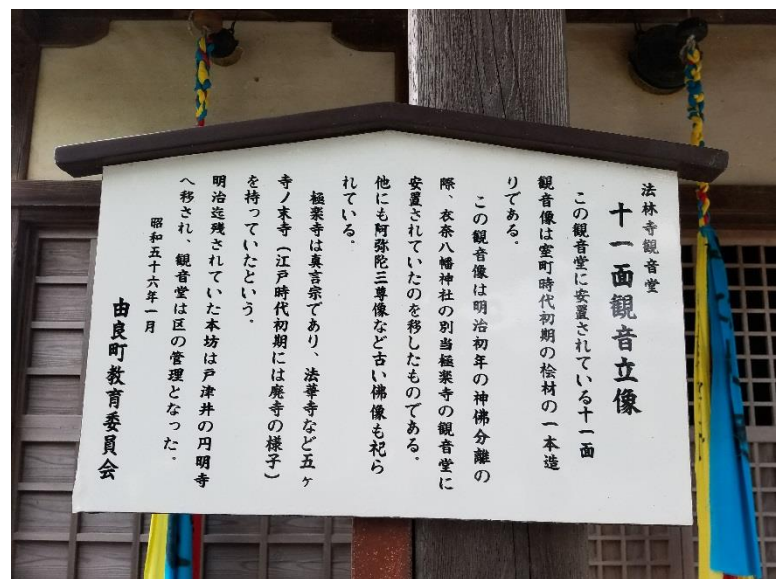 法林寺観音堂
十一面観音立像
この観音堂に安置されている十一面
観音像は室町時代初期の桧材の一本造
りである．
この観音像は明治初年の神佛分離の
際、衣奈八幡神社の別当極楽寺の観音堂に
安置されていたのを移したものである．
他にも阿弥陀三尊像など古い佛像も祀ら
れている．
極楽寺は真言宗であり、法華寺など五ヶ
寺ノ末寺（江戸時代初期には廃寺の様子）
を持っていたという．
明治迄残されていた本坊は戸津井の円明寺
へ移され、観音堂は区の管理となった．
昭和五十六年一月
由良町教育委員会